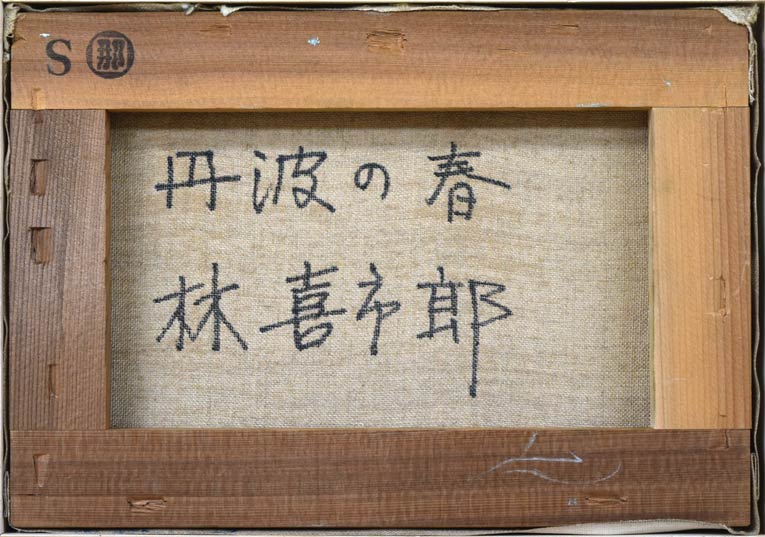 S 那
丹波の春
林喜市郎